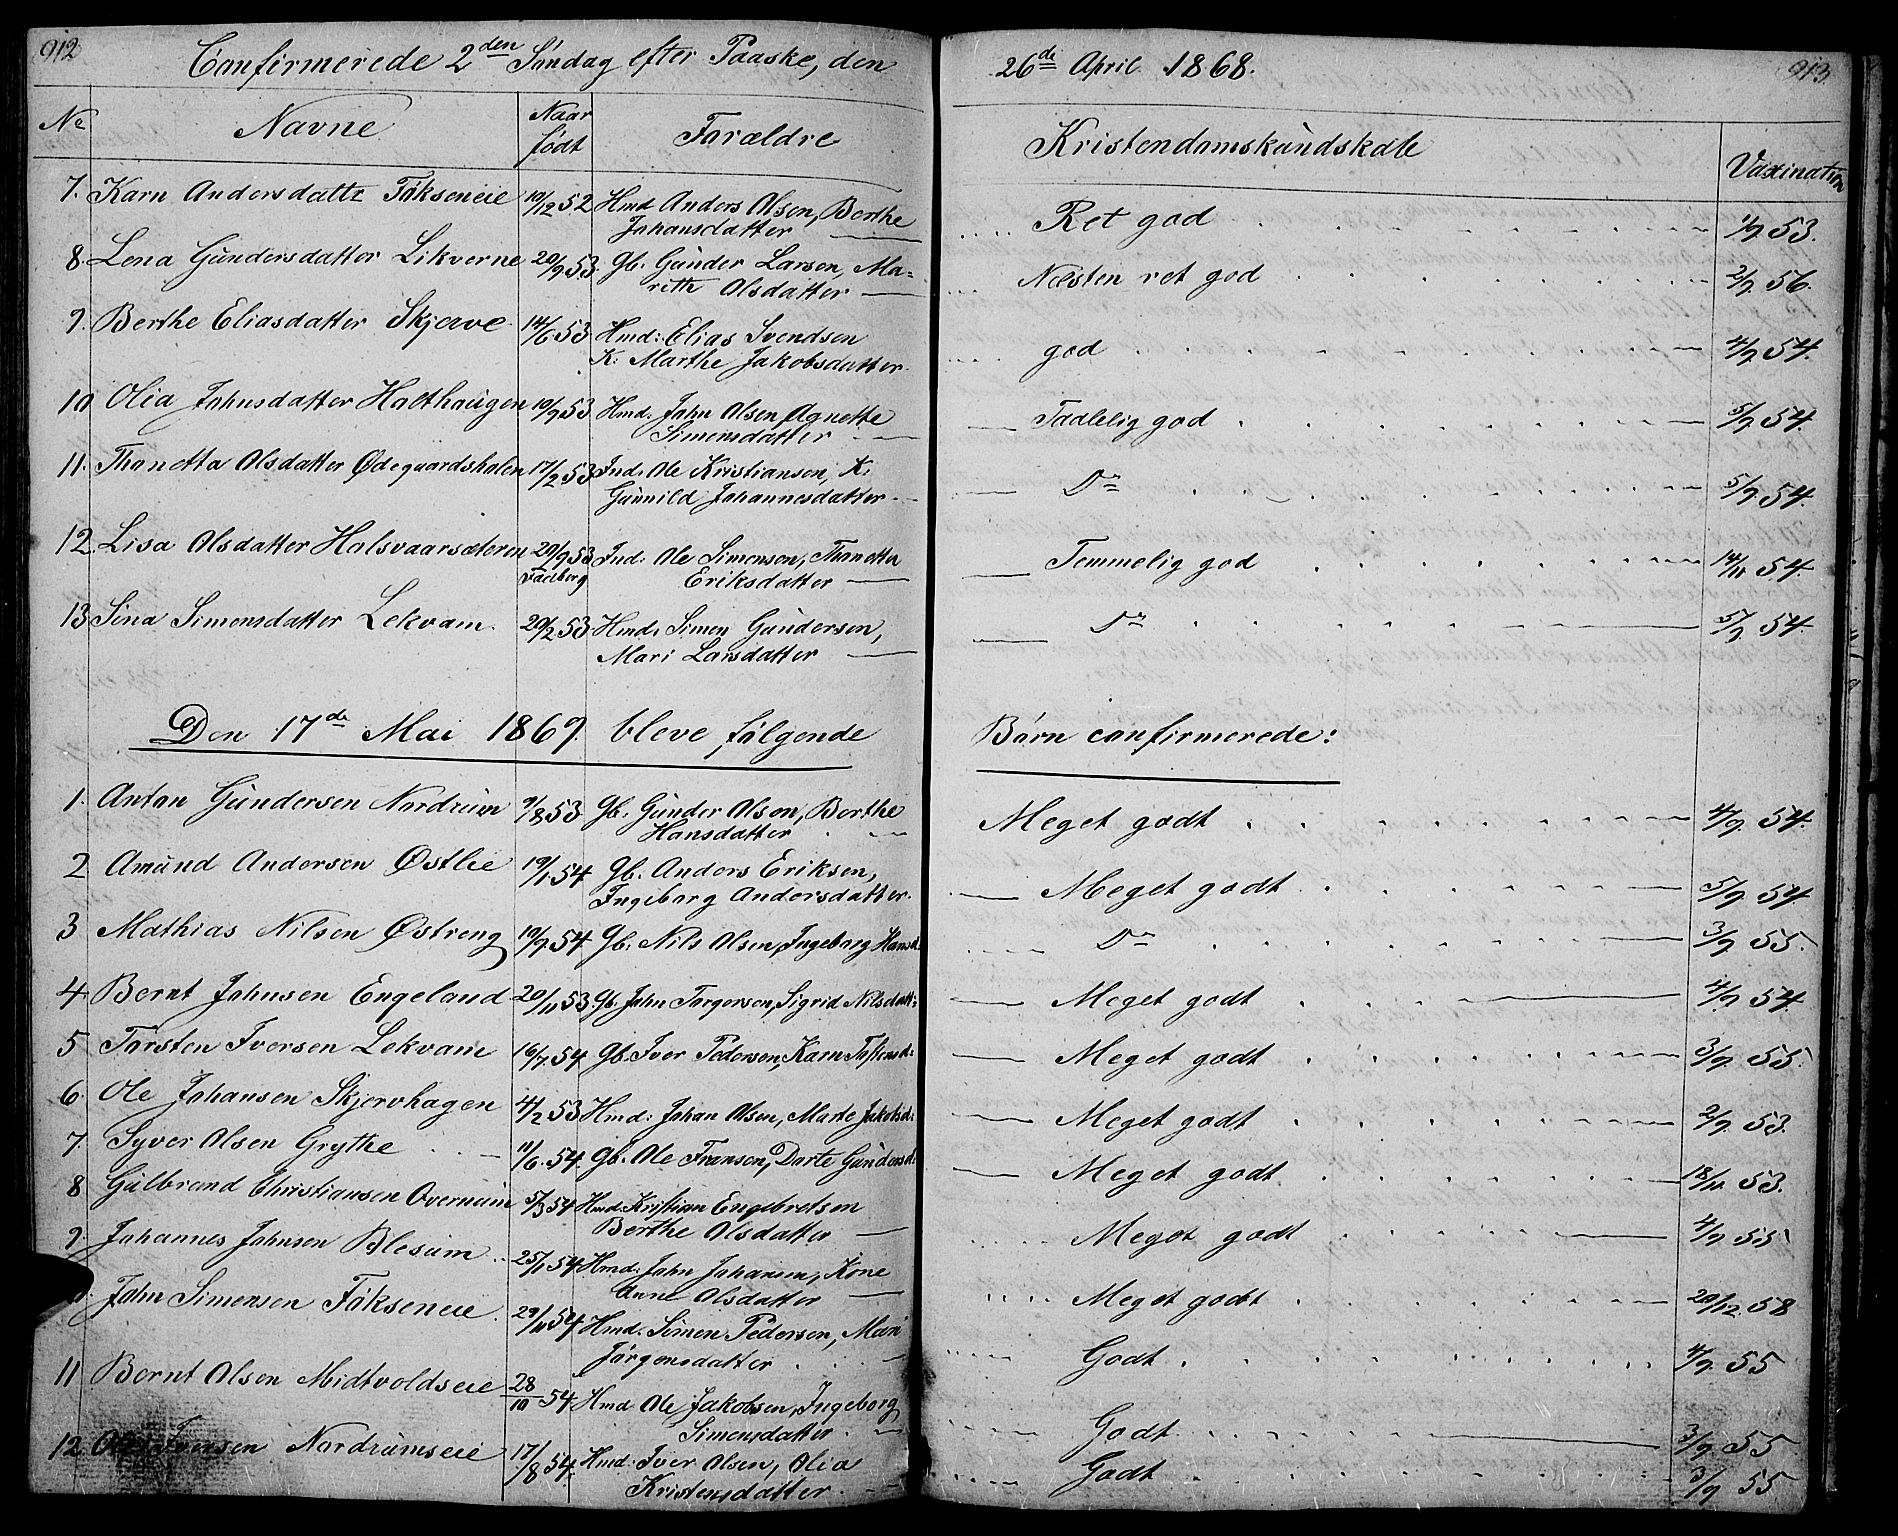 912
Confirmerede 2den Søndag efter Paaske, den 26de April 1868.
913
No Navne Naar født Forældre Kristendomskundskab Vaxination
7. Karn Andersdatter Fåkseneie 19/12 52 Hmd Anders Olsen, Berthe
Johansdatter — Ret god 1/9 53.
8. Lena Gundersdatter Likverne 20/9 53. Gb. Gunder Larsen, Ma-
rethe Olsdatter — Næsten ret god 2/9 56.
9. Berthe Eliasdatter Skjerve 14/6 53 Hmd: Elias Svendsen
K. Marthe Jakobsdatter. god 4/9 54.
10 Olia Johnsdatter Holthaugen 10/9 53 Hmd. John Olsen, Agnethe
Simensdatter — Tadlelig god 5/9 54.
11. Thonetta Olsdatter Ødegaardsholen 17/2 53 Ind. Ole Kristiansen, K.
Gunnild Johannesdatter — Do 5/9 54.
12. Lisa Olsdatter Halsvaarsæteren 20/9 53 Ind. Ole Simensen, Thonetta
Faaberg Eriksdatter — Temmelig god 14/11 54.
13 Sina Simensdatter Lekvam. 20/2 53 Hmd. Simen Gundersen,
Mari Larsdatter — Do 5/9 54.
Den 17de Mai 1869. bleve følgende Børn confirmerede:
1. Anton Gundersen Nordrum 9/8 53 Gb. Gunder Olsen, Berthe
Hansdatter — Meget godt 4/9. 54.
2 Amund Andersen Østlie 19/1 54 Gb. Anders Eriksen,
Ingeborg Andersdatter. Meget godt 5/9. 54
3 Mathias Nilsen Østreng 19/9 54 Gb. Nils Olsen, Ingeborg Hansd. Do 3/9 55.
4 Bernt Johnsen Engeland 20/11 53 Gb. John Torgersen, Sigrid Nilsdatt: Meget godt 4/9 54.
5 Torsten Iversen Lekvam 16/7. 54 Gb. Iver Pedersen, Karn Tostensd: Meget godt 3/9. 55.
6. Ole Johansen Skjervhagen 4/2 53 Hmd: Johan Olsen, Marte Jakobsd: Meget godt 2/9. 53.
7. Syver Olsen Grythe 11/6. 54. Gb. Ole Fransen, Dorte Gundersd: Meget godt 18/11 53.
8 Gulbrand Christiansen Overnum 5/3 54 Hmd. Kristian Engebretsen
Berthe Olsdatter — Meget godt 4/9 55
9. Johannes Johnsen Blesum 25/1 54 Hmd: John Johansen, Kone
Anne Olsdatter — Meget godt 20/12. 58
John Simensen Fåkseneie. 29/11 54 Hmd. Simen Pedersen, Mari
Jörgensdatter Godt 4/9. 55
11 Bernt Olsen Midtvoldseie 28/10 54 Hmd Ole Jakobsen, Ingeborg
Simensdatter. Godt 3/9. 55
12. Ole Iversen Nordrumseie 17/8 54. Hmd. Iver Olsen, Olia
Kristensdatter. Godt 3/9 55